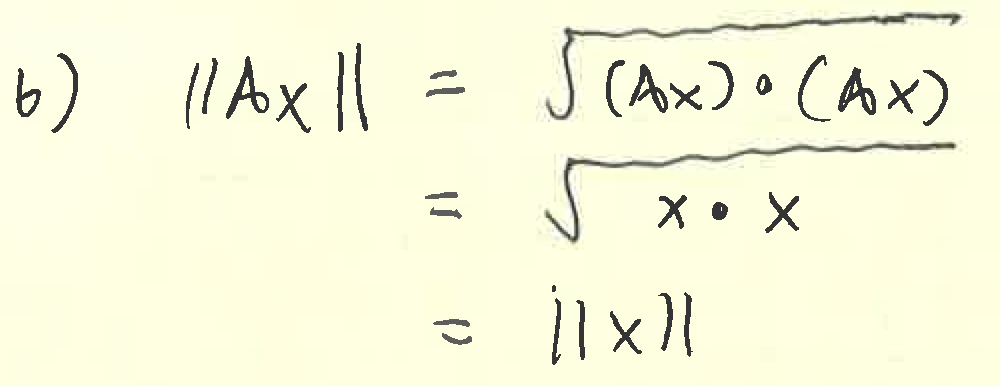 b) ||Ax|| = √(Ax)·(Ax)
= √x·x
= ||x||